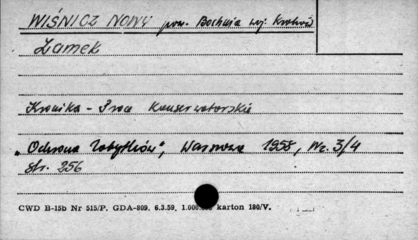 WIŚNICZ NOWY pow. Bochnia woj. Kraków
Zamek
Kronika - Prace Konserwatorskie
"Ochrona Zabytków", Warszawa 1958, Nr. 3/4
str. 256
CWD B-15b Nr 515/P. GDA-809. 6.3.59. 1.000.000 karton 180/V.